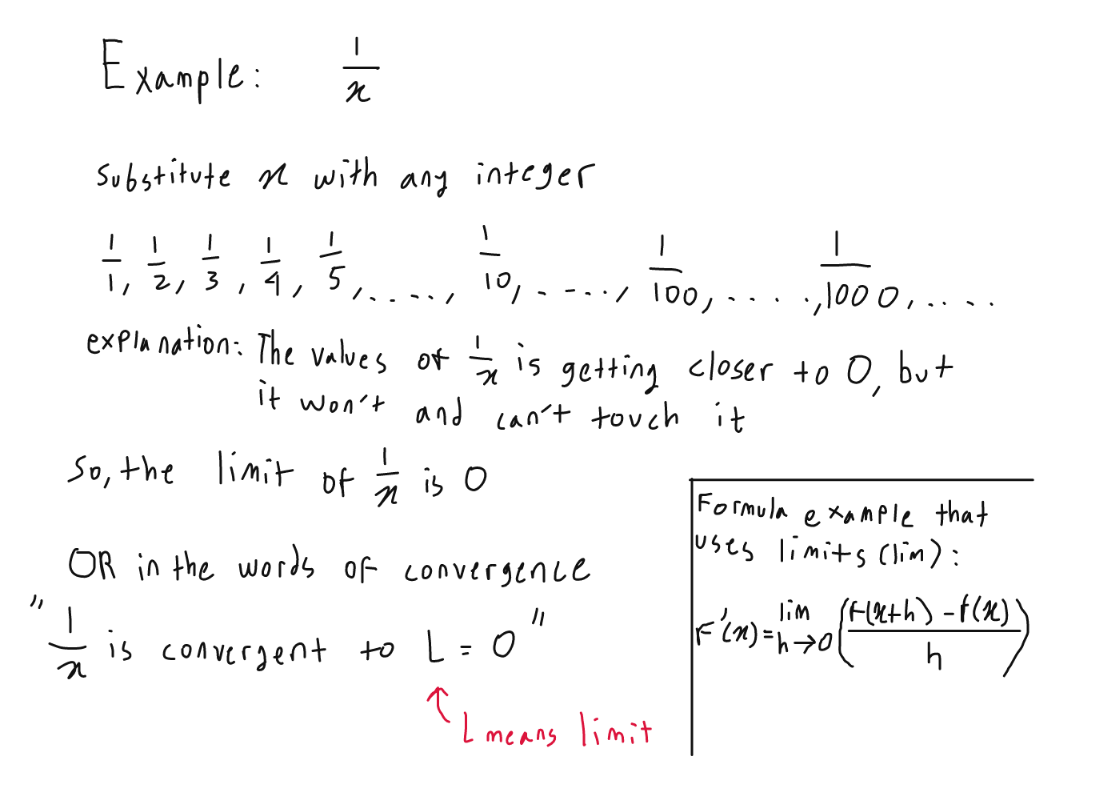 Example: 1/x
Substitute x with any integer
1/1, 1/2, 1/3, 1/4, 1/5, . . . . , 1/10, . . . . , 1/100, . . . . , 1/1000, . . . .
explanation: The values of 1/x is getting closer to 0, but
it won't and can't touch it
So, the limit of 1/x is 0
OR in the words of convergence
"1/x is convergent to L = 0"
L means limit
Formula example that
uses limits (lim):
F'(x) = lim h→0 (F(x+h) - f(x) / h)